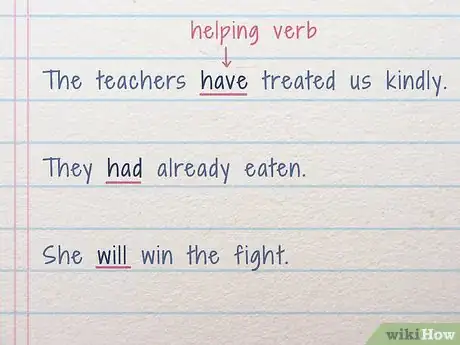 helping verb
The teachers have treated us kindly.
They had already eaten.
She will win the fight.
wikiHow